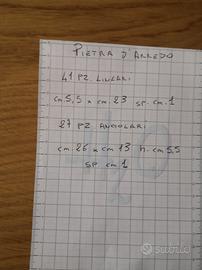 PIETRA D'ARREDO
41 PZ LINEARI
cm. 5,5 x cm. 23 sp. cm. 1
27 PZ ANGOLARI
cm. 26 x cm 13 h. cm 5.5
sp. cm 1
subito